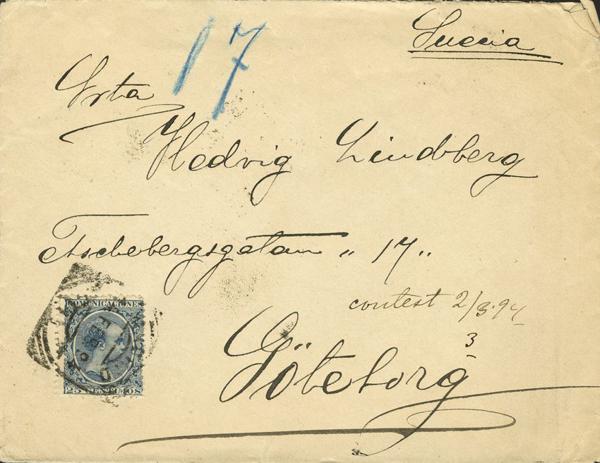 17
Suecia
Srta
Hedvig Lindberg
Tschebergsgatan " 17 "
contest 2/3.94
3
Göteborg
COMUNICACIONES
25 CENTIMOS